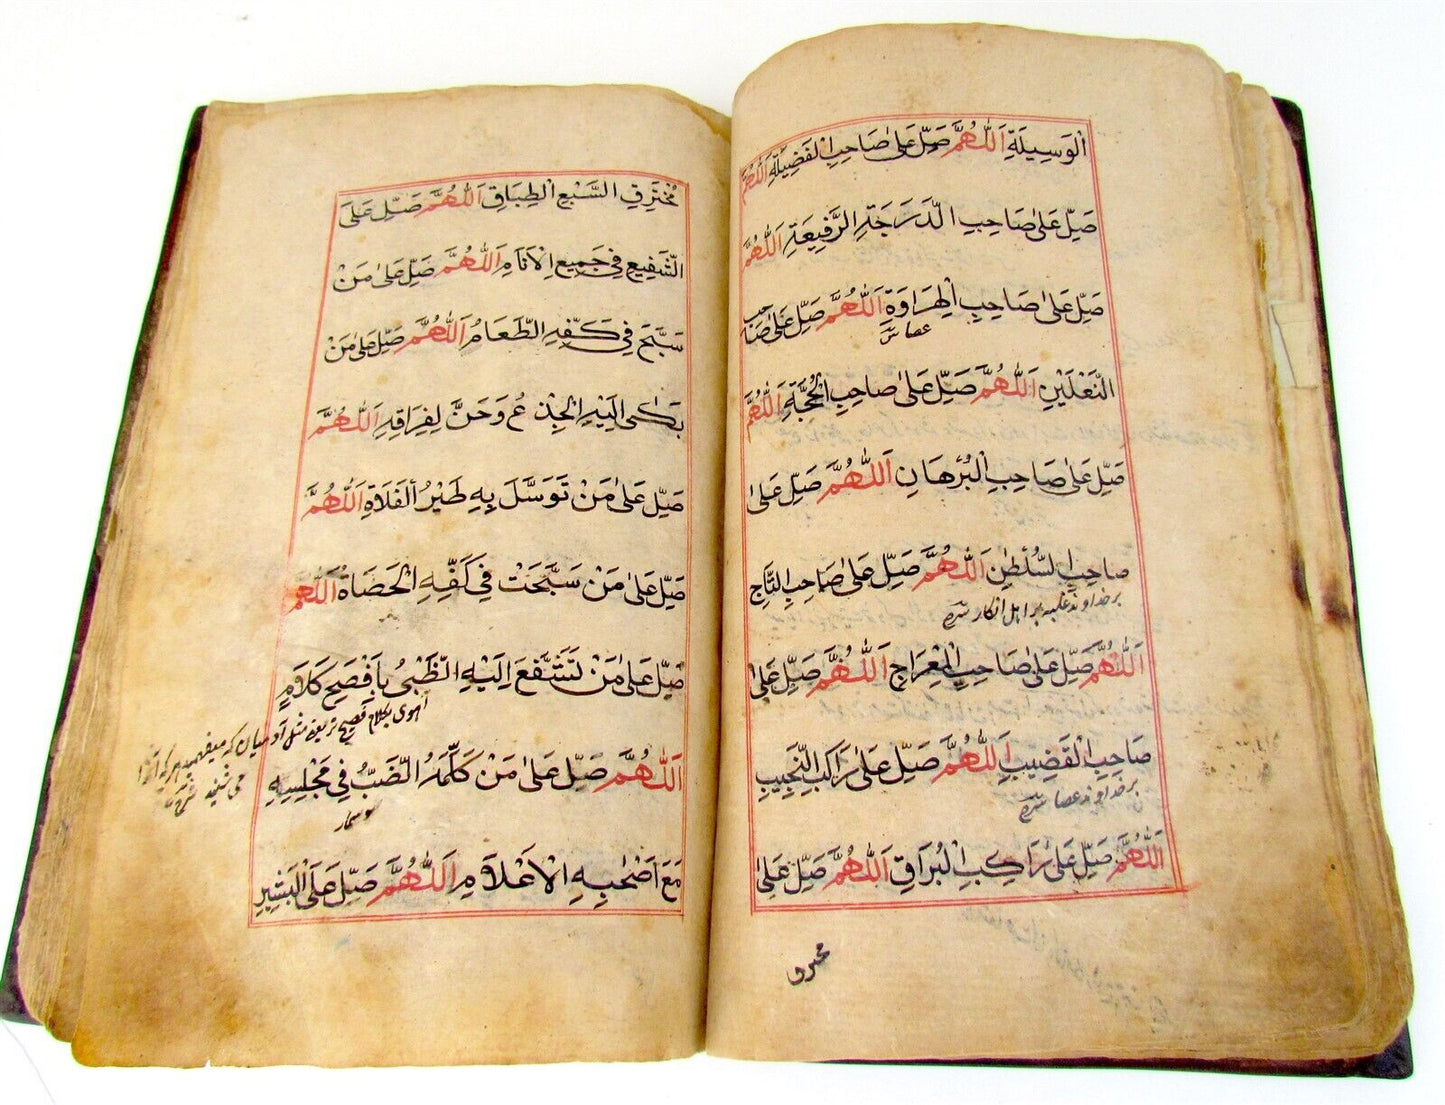 الْوَسِيلَةِ اَللّٰهُمَّ صَلِّ عَلٰى صَاحِبِ الْفَضِيلَةِ اَللّٰهُمَّ
صَلِّ عَلٰى صَاحِبِ الدَّرَجَةِ الرَّفِيعَةِ اَللّٰهُمَّ
صَلِّ عَلٰى صَاحِبِ الْهِرَاوَةِ اَللّٰهُمَّ صَلِّ عَلٰى صَاحِبِ
عصا
النَّعْلَيْنِ اَللّٰهُمَّ صَلِّ عَلٰى صَاحِبِ الْحُجَّةِ اَللّٰهُمَّ
صَلِّ عَلٰى صَاحِبِ الْبُرْهَانِ اَللّٰهُمَّ صَلِّ عَلٰى
صَاحِبِ السُّلْطٰنِ اَللّٰهُمَّ صَلِّ عَلٰى صَاحِبِ التَّاجِ
بر خداوند غلبه بر اهل انكار
اَللّٰهُمَّ صَلِّ عَلٰى صَاحِبِ الْمِعْرَاجِ اَللّٰهُمَّ صَلِّ عَلٰى
صَاحِبِ الْقَضِيبِ اَللّٰهُمَّ صَلِّ عَلٰى رَاكِبِ النَّجِيبِ
بر خداوند عصا
اَللّٰهُمَّ صَلِّ عَلٰى رَاكِبِ الْبُرَاقِ اَللّٰهُمَّ صَلِّ عَلٰى
مخترق
مُخْتَرِقِ السَّبْعِ الطِّبَاقِ اَللّٰهُمَّ صَلِّ عَلَى
الشَّفِيعِ فِي جَمِيعِ الْاَنَامِ اَللّٰهُمَّ صَلِّ عَلٰى مَنْ
سَبَّحَ فِي كَفِّهِ الطَّعَامُ اَللّٰهُمَّ صَلِّ عَلٰى مَنْ
بَكٰى اِلَيْهِ الْجِذْعُ وَحَنَّ لِفِرَاقِهِ اَللّٰهُمَّ
صَلِّ عَلٰى مَنْ تَوَسَّلَ بِهِ طَيْرُ الْفَلَاةِ اَللّٰهُمَّ
صَلِّ عَلٰى مَنْ سَبَّحَتْ فِي كَفِّهِ الْحَصَاةُ اَللّٰهُمَّ
صَلِّ عَلٰى مَنْ تَشَفَّعَ اِلَيْهِ الظَّبْيُ بِاَفْصَحِ كَلَامٍ
آهوى بكلام فصيح مثل آدميان كه
اَللّٰهُمَّ صَلِّ عَلٰى مَنْ كَلَّمَهُ الضَّبُّ فِي مَجْلِسِهِ
سوسمار
مَعَ اَصْحٰبِهِ الْاَعْلَامِ اَللّٰهُمَّ صَلِّ عَلَى الْبَشِيرِ